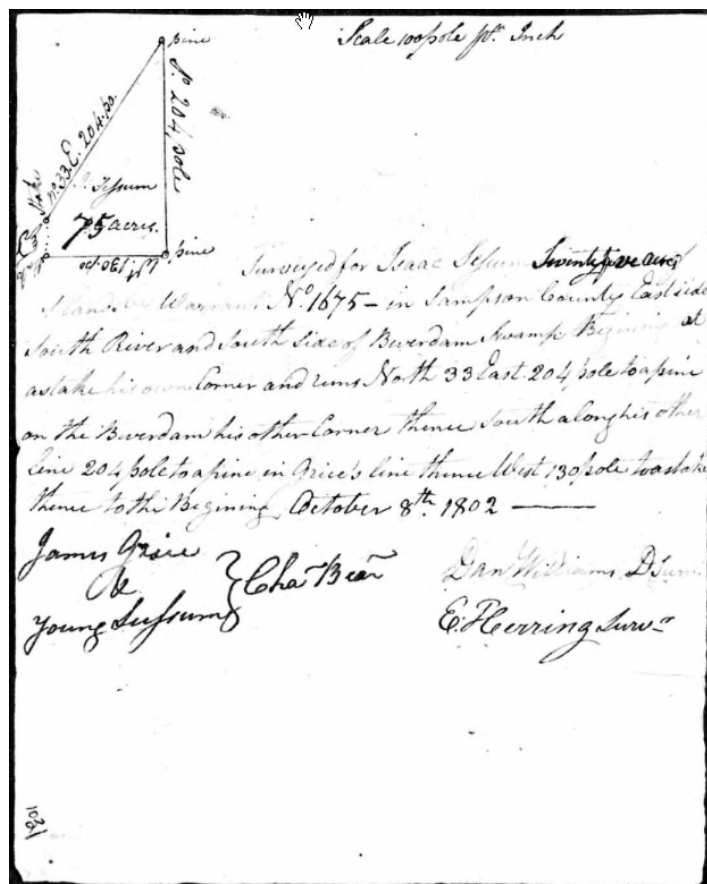 Scale 100 pole pr. Inch
pine
So. 204 pole
No. 33 E. 204 po.
Stake
J. Sessum
75 acres.
pine
Wt. 130 po
Surveyed for Isaac Sessum Seventy five acres
of land. Warrant No. 1675 - in Sampson County East side
South River and South side of Beverdam Swamp Begining at
a stake his own Corner and runs North 33 East 204 pole to a pine
on the Beverdam his other Corner thence South along his other
line 204 pole to a pine in Grice's line thence West 130 pole to a stake
thence to the Begining October 8th. 1802
James Grice
&
Young Sessums
} Cha Bear
Dan Williams D Surv.
E. Herring Survr
1021